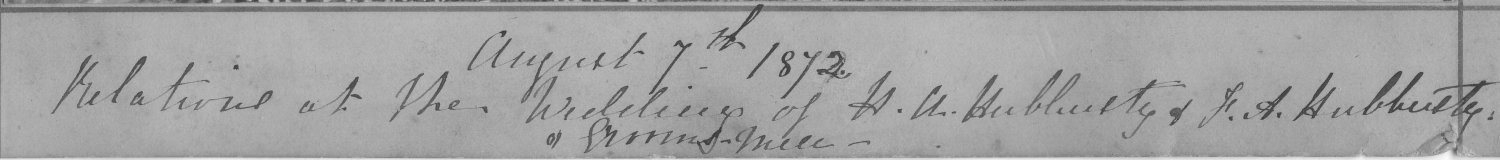 August 7th 1872.
Relations at the Wedding of H. A. Hubbersty & F. A. Hubbersty.
& Grooms-men -